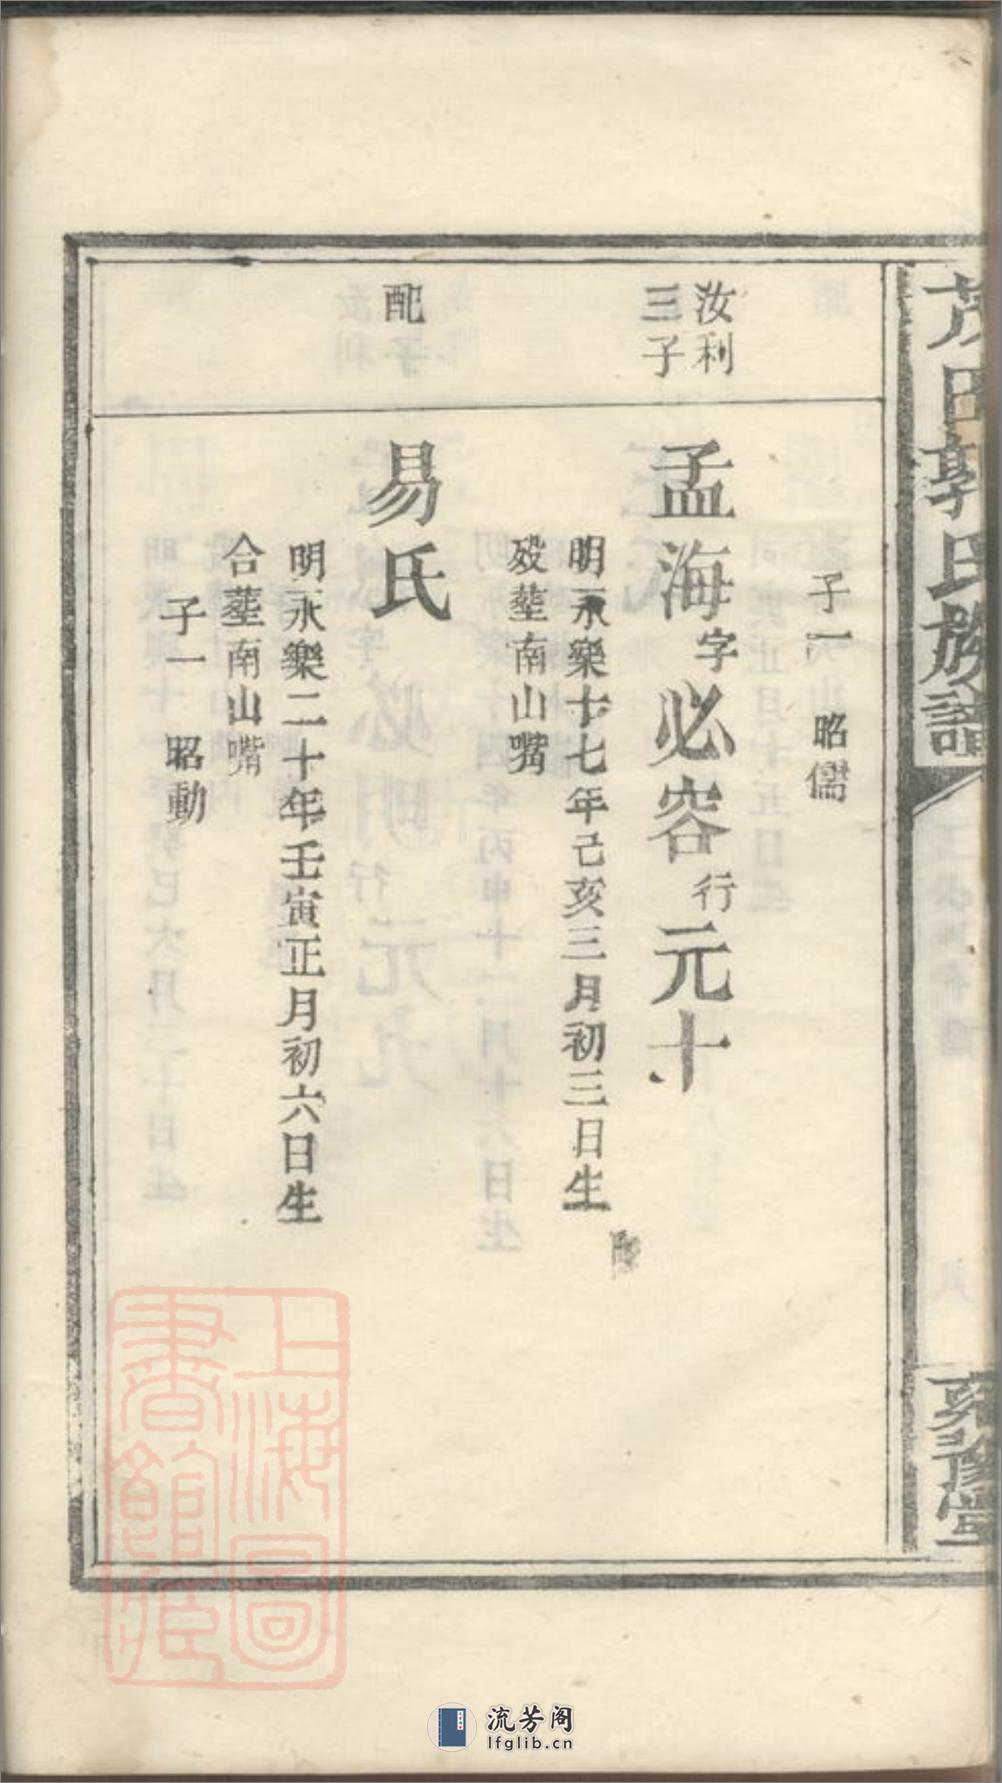 茂田郭氏族譜
子一　昭儒
汝利
三子
孟海字必容行元十
明永樂十七年己亥三月初三日生
歿塟南山嘴
配
易氏
明永樂二十年壬寅正月初六日生
合塟南山嘴
子一　昭動
上海圖
書館藏
流芳阁
lfglib.cn